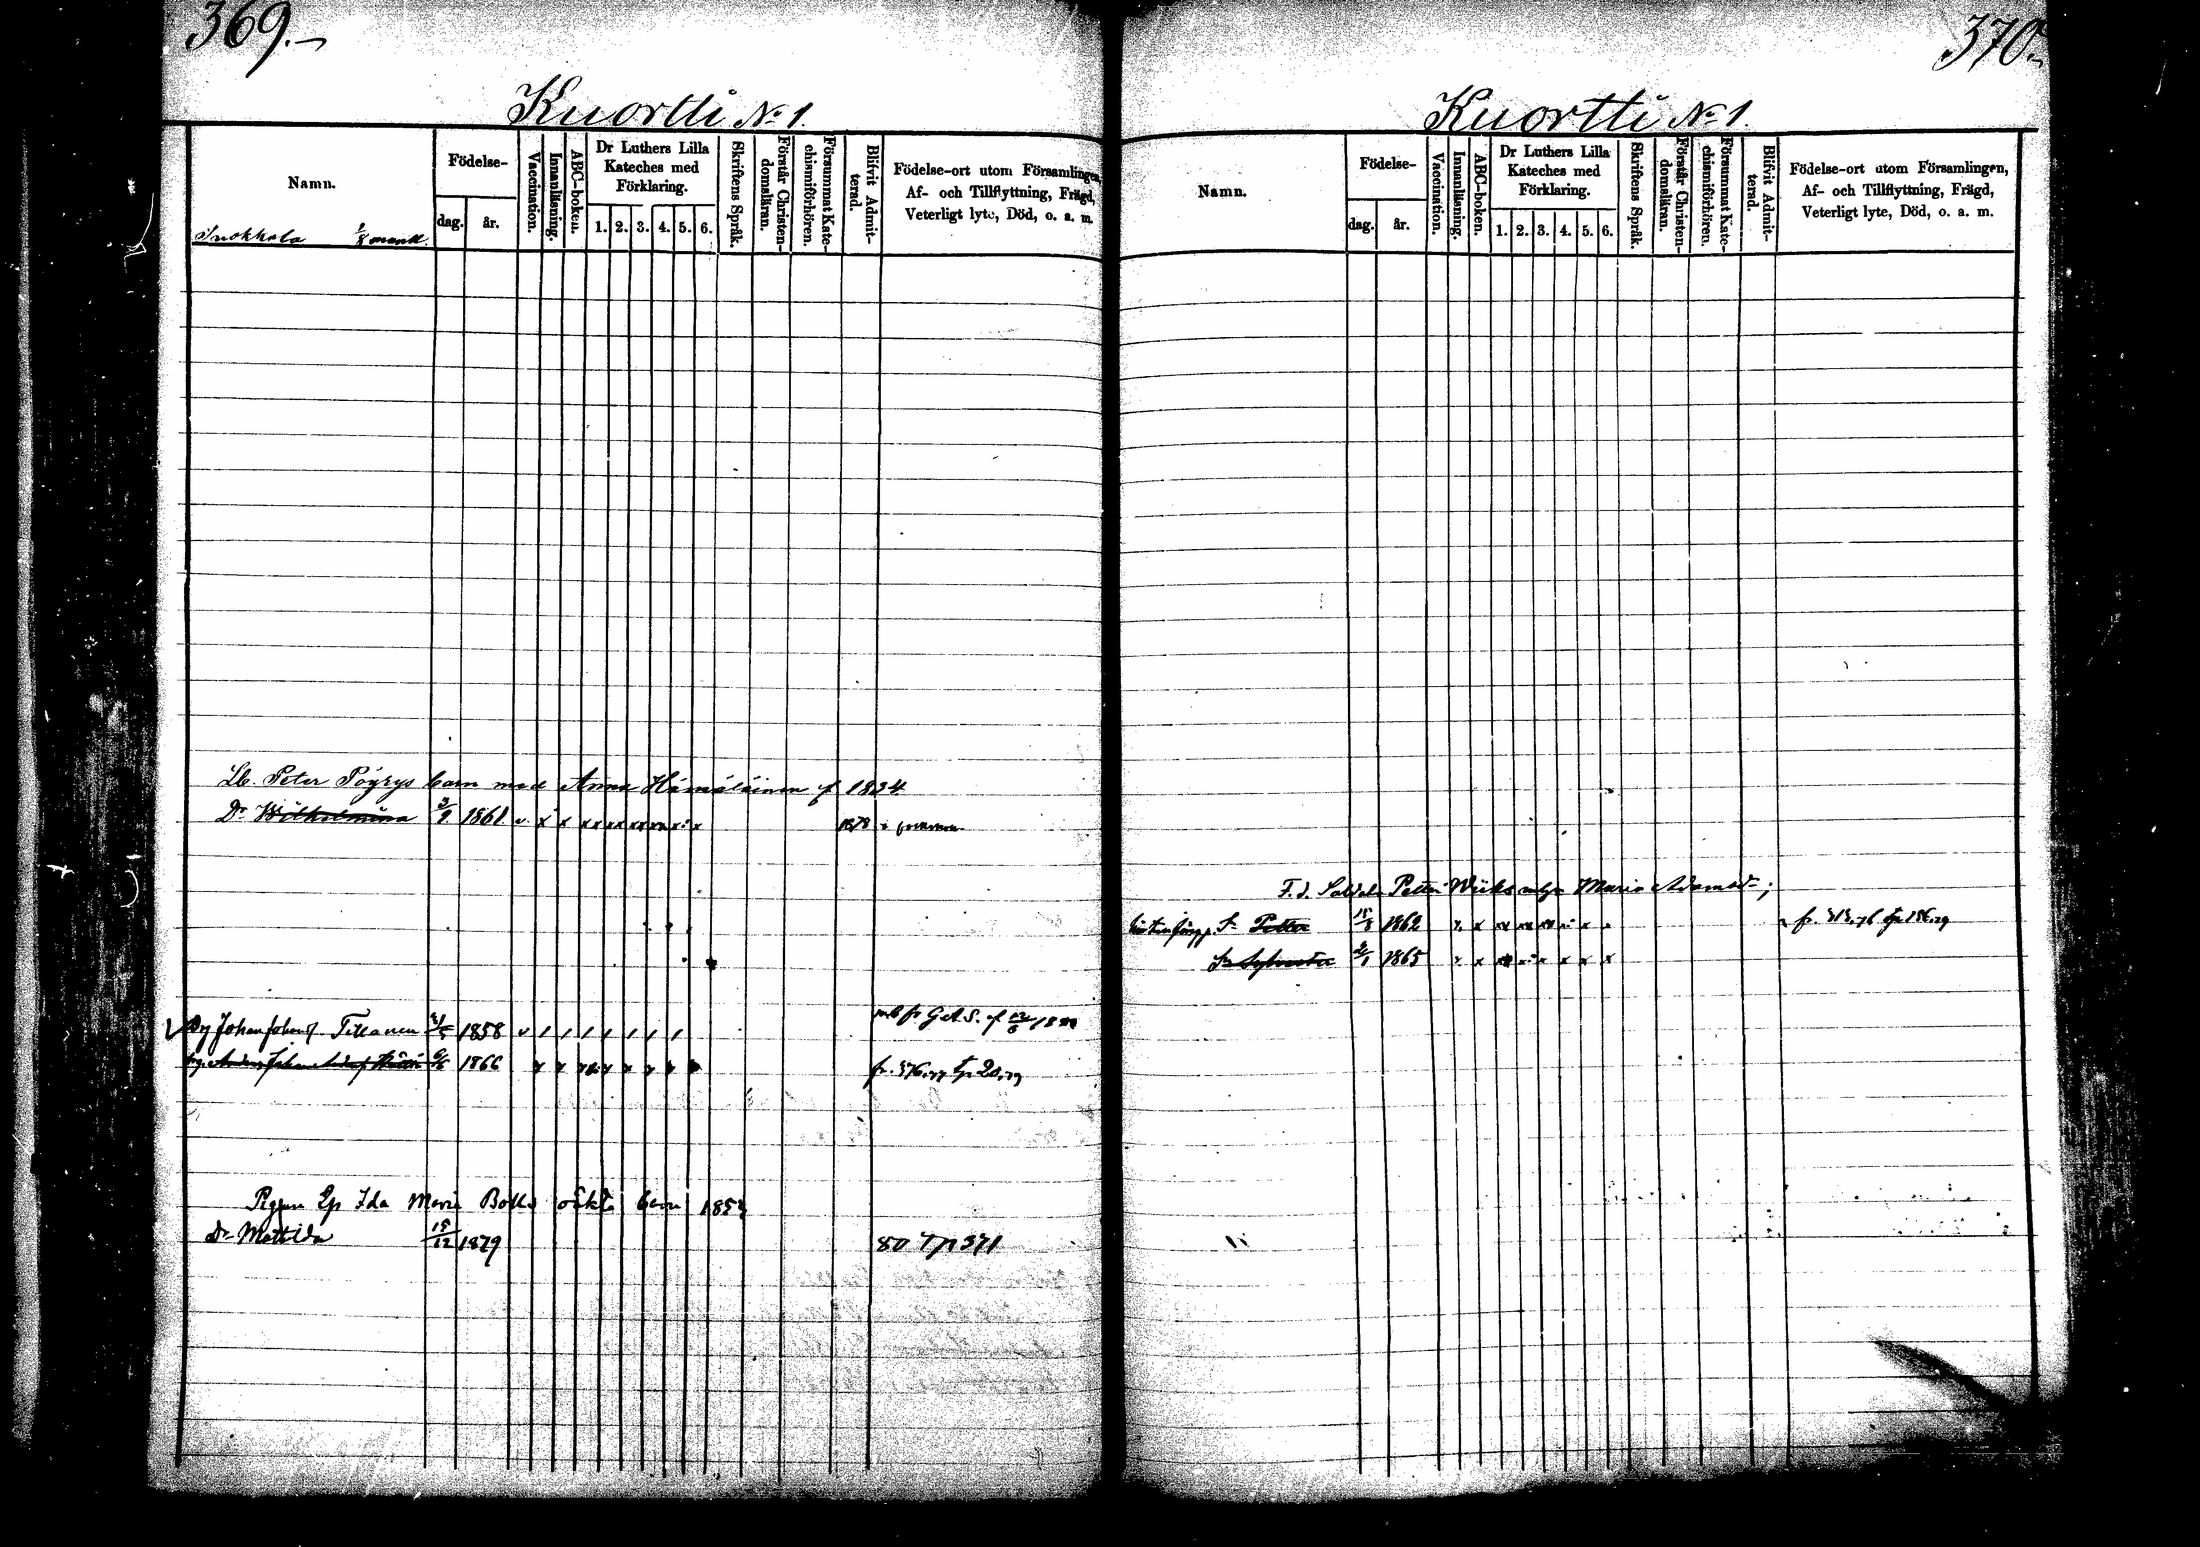 369.
Kuortti No 1.
Namn.
Födelse-
dag.
år.
Vaccination.
Innanläsning.
ABC-boken.
Dr Luthers Lilla Kateches med Förklaring.
1. 2. 3. 4. 5. 6.
Skriftens Språk.
Förstår Christendomsläran.
Försummat Katechismiförhören.
Blifvit Admitterad.
Födelse-ort utom Församlingen,
Af- och Tillflyttning, Frägd,
Veterligt lyte, Död, o. a. m.
Lb. Peter Pöyrys barn med Anna Hämäläinen f 1824.
Dr Wilhelmina 3/9 1861 v x x xx xx xx xx x 1878
Dy Johan Johansf Tillanen 1858 v / / / / / / /
1866 fr. 376.77 tp 20.79
Pigan Ida Maria oäkta barn
Dr Matilda 15/12 1879 80 Tp 371
370.
Kuortti No 1.
Namn.
Födelse-
dag.
år.
Vaccination.
Innanläsning.
ABC-boken.
Dr Luthers Lilla Kateches med Förklaring.
1. 2. 3. 4. 5. 6.
Skriftens Språk.
Förstår Christendomsläran.
Försummat Katechismiförhören.
Blifvit Admitterad.
Födelse-ort utom Församlingen,
Af- och Tillflyttning, Frägd,
Veterligt lyte, Död, o. a. m.
F. d. Soldat Petter Maria Adamsd
Sn Petter 15/8 1862
Sn Sylvester 2/1 1865